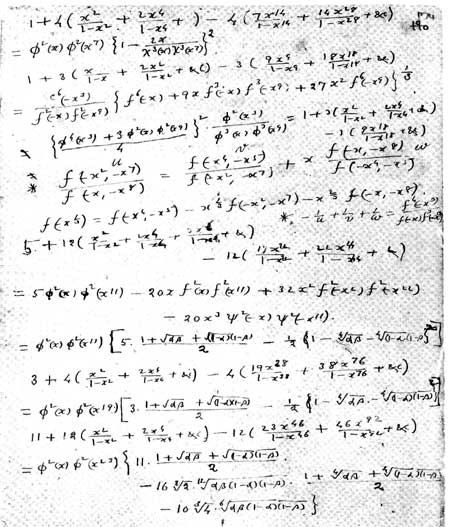 1+4(x²/1-x² + 2x⁴/1-x⁴ + ) - 4(7x¹⁴/1-x¹⁴ + 14x²⁸/1-x²⁸ + &c)
= φ²(x) φ²(x⁷) {1 - 2x/χ³(x)χ³(x⁷)}²
1 + 3(x/1-x + 2x²/1-x² + &c) - 3(9x⁹/1-x⁹ + 18x¹⁸/1-x¹⁸ + &c)
= f⁶(-x³)/f²(x) f²(x⁹) {f⁶(x) + 9x f³(x) f³(x⁹) + 27x² f⁶(x⁹)}^⅓
{φ⁴(x³) + 3φ²(x) φ²(x⁹)/4}² φ²(x³)/φ³(x) φ³(x⁹) = 1+3(x²/1-x² + 2x⁴/1-x⁴ + &c)
-3(9x¹⁸/1-x¹⁸ + &c)
u v w
* f(-x², -x⁷)/f(-x, -x⁸) = f(-x⁴, -x⁵)/f(-x², -x⁷) + x f(-x, -x⁸)/f(-x⁴, -x⁵)
f(x) = f(-x⁴, -x⁵) - x^⅓ f(-x², -x⁷) - x^⅔ f(-x, -x⁸).
* -1/u + 1/v + 1/w =
5 + 12(x²/1-x² + 2x⁴/1-x⁴ + &c)
-12(11x²²/1-x²² + 22x⁴⁴/1-x⁴⁴ + &)
= 5φ²(x) φ²(x¹¹) - 20x f²(x) f²(x¹¹) + 32x² f²(x²) f²(x²²)
- 20x³ ψ²(-x) ψ²(-x¹¹).
= φ²(x) φ²(x¹¹) [5. 1+√αβ + √(1-α)(1-β)/2 - ½{1 - ⁴√αβ - ⁴√(1-α)(1-β)}²]
3 + 4(x²/1-x² + 2x⁴/1-x⁴ + &c) - 4(19x³⁸/1-x³⁸ + 38x⁷⁶/1-x⁷⁶ + &c)
= φ²(x) φ²(x¹⁹) [3. 1+√αβ + √(1-α)(1-β)/2 - ½{1 - ⁴√αβ - ⁴√(1-α)(1-β)}²]
11 + 12(x²/1-x² + 2x⁴/1-x⁴ + &c) - 12(23x⁴⁶/1-x⁴⁶ + 46x⁹²/1-x⁹² + &c)
= φ²(x) φ²(x²³) {11. 1+√αβ + √(1-α)(1-β)/2
- 16 ³√2. ¹²√αβ(1-α)(1-β). 1+ ⁴√αβ + ⁴√(1-α)(1-β)/2
- 10 ³√4. ⁶√αβ(1-α)(1-β)}